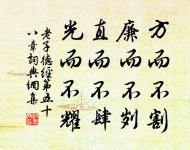 方而不割
廉而不刿
直而不肆
光而不耀
老子德經第五十
八章詞典網集